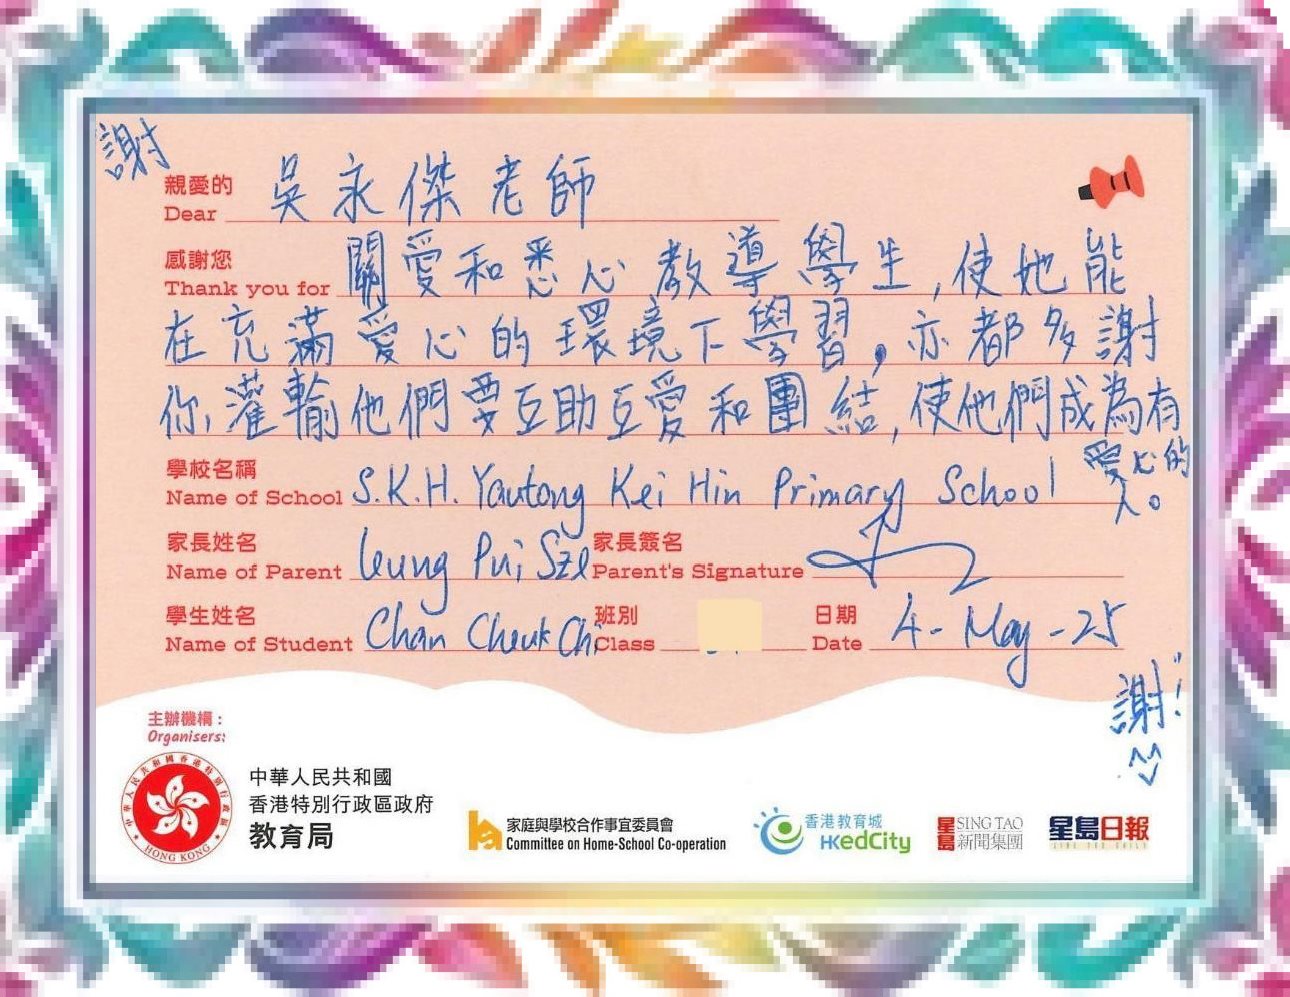 謝
親愛的 吳永傑老師
Dear
感謝您 關愛和悉心教導學生,使她能
Thank you for
在充滿愛心的環境下學習,亦都多謝
你,灌輸他們要互助互愛和團結,使他們成為有
愛心的
人。
學校名稱
Name of School S.K.H. Yautong Kei Hin Primary School
家長姓名 家長簽名
Name of Parent Leung Pui Sze Parent's Signature
學生姓名 班別 日期
Name of Student Chan Cheuk Chi Class Date 4-May-25
謝!
主辦機構:
Organisers:
中華人民共和國
香港特別行政區政府
教育局
HONG KONG
家庭與學校合作事宜委員會
Committee on Home-School Co-operation
香港教育城
HKedCity
星島 SING TAO
新聞集團
星島日報
SING TAO DAILY